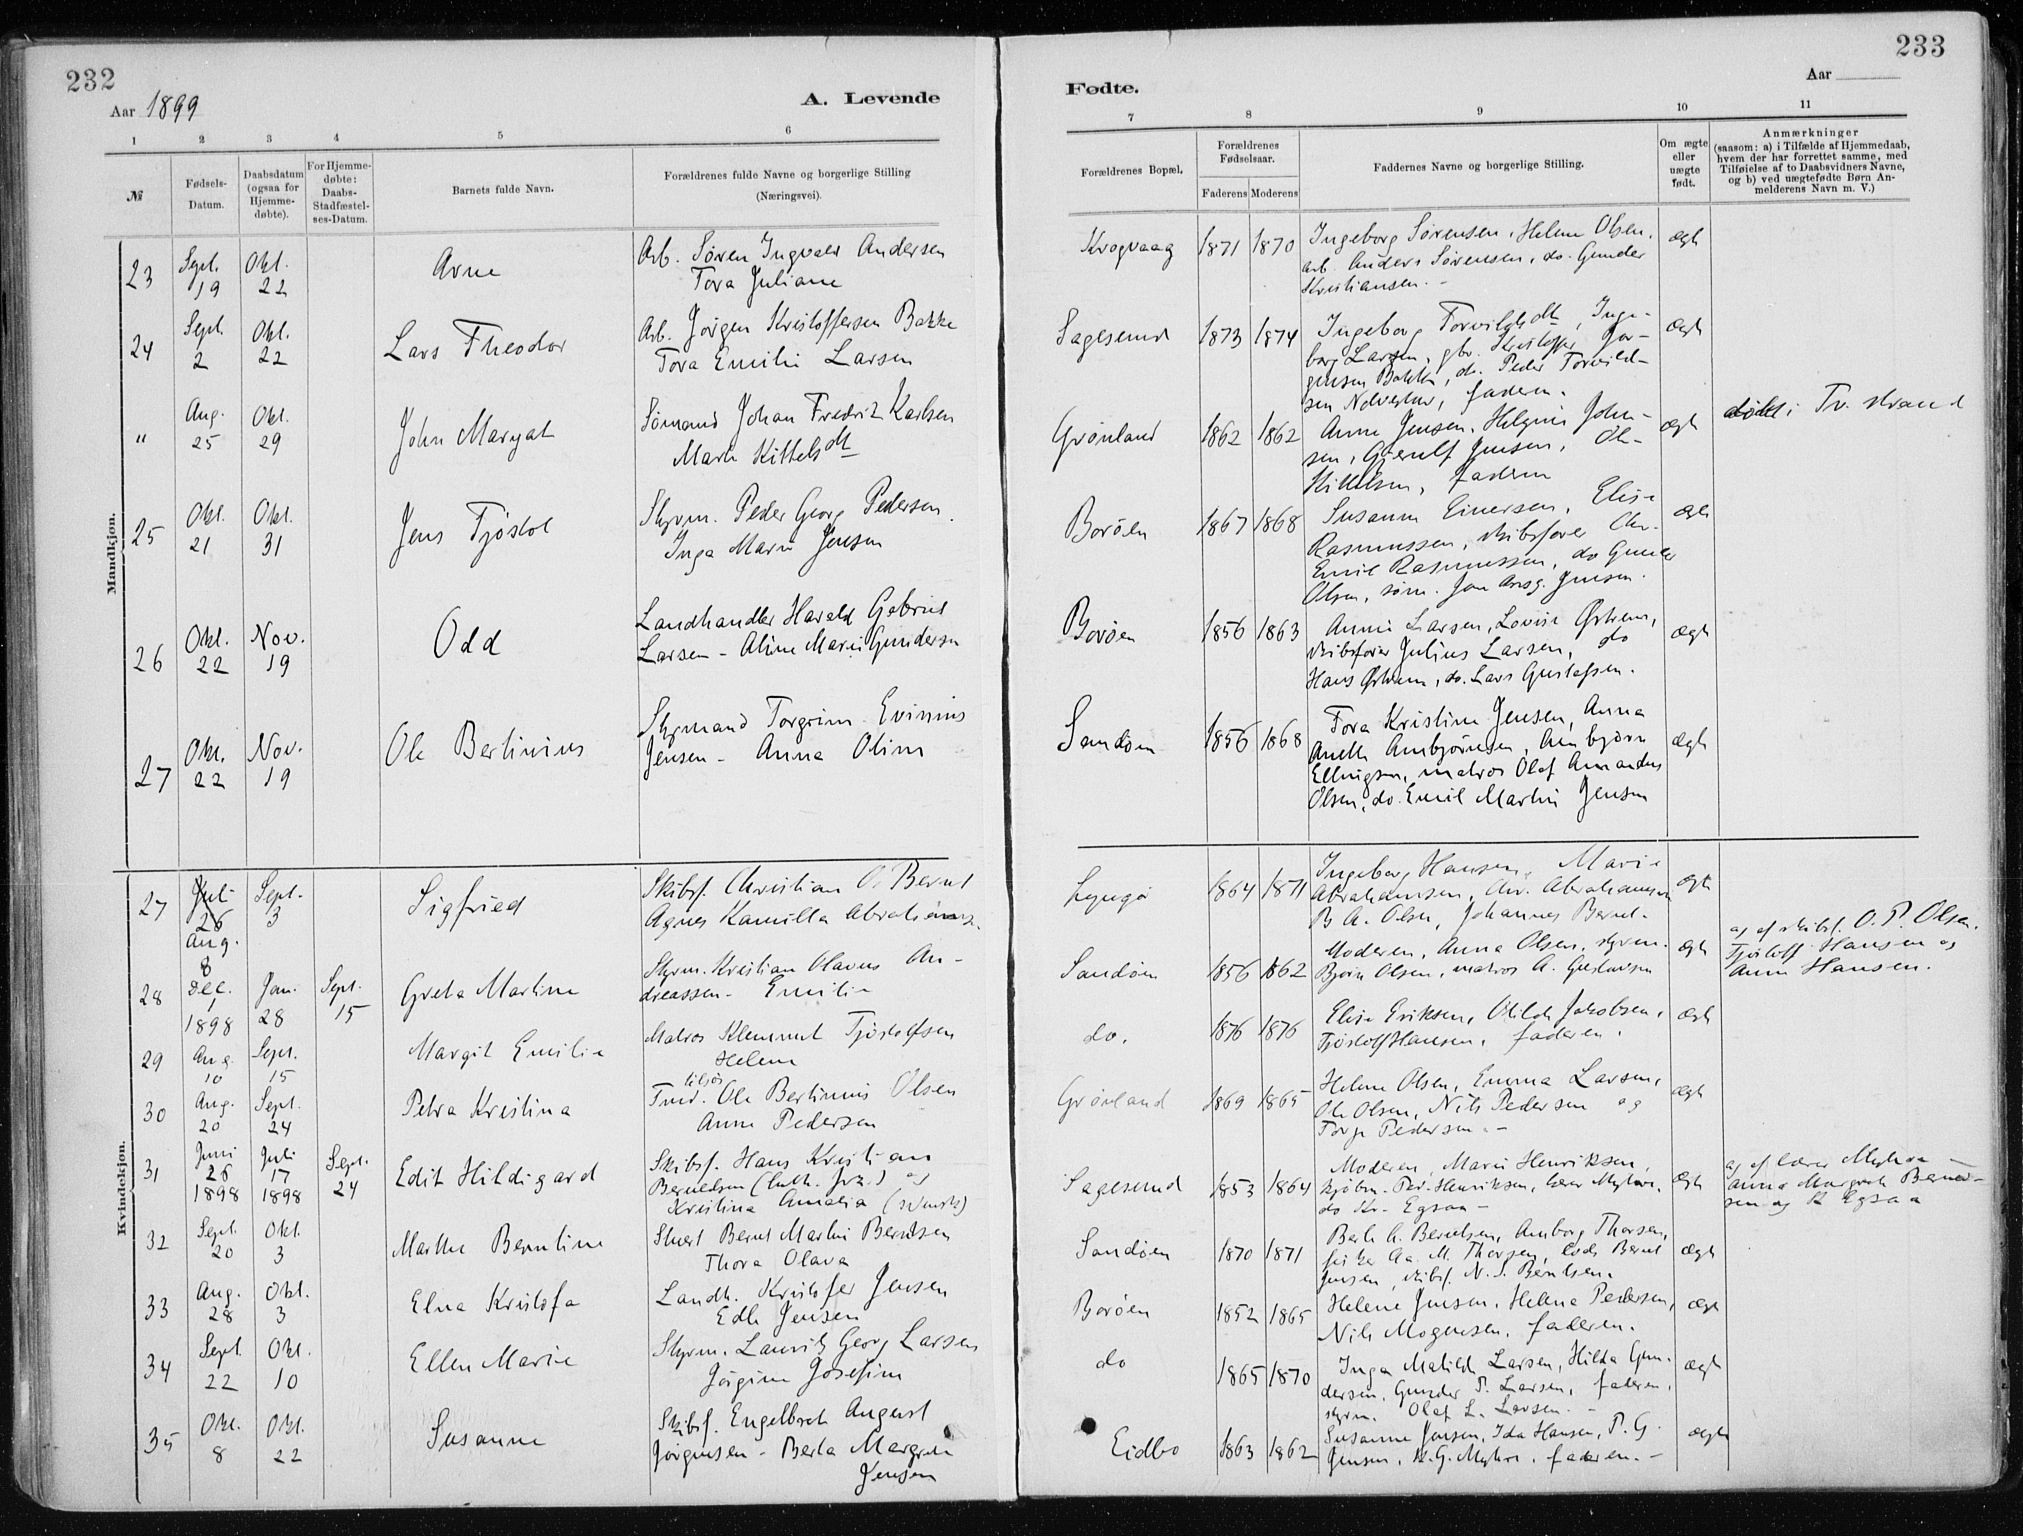 232
Aar 1899
A. Levende
1 2 3 4 5 6
№
Fødsels-
Datum.
Daabsdatum
(ogsaa for
Hjemme-
døbte).
For Hjemme-
døbte:
Daabs-
Stadfæstel-
ses-Datum.
Barnets fulde Navn.
Forældrenes fulde Navne og borgerlige Stilling
(Næringsvei).
Mandkjøn.
23 Sept. 19 Okt. 22 Arne
Arb. Søren Ingvald Andersen
Tora Juliane
24 Sept. 2 Okt. 22 Lars Theodor
Arb. Jørgen Kristoffersen Bakke
Tora Emilie Larsen
" Aug. 25 Okt. 29 John Margat
Sømand Johan Fredrik Karlsen
Marte Kittelsdtr
25 Okt. 21 Okt. 31 Jens Tjøstol
Styrm. Peder Georg Pedersen
Inga Marie Jensen
26 Okt. 22 Nov. 19 Odd
Landhandler Harald Gabriel
Larsen - Aline Marie Gundersen
27 Okt. 22 Nov. 19 Ole Bertinius
Styrmand Torgrim Evinius
Jensen - Anna Oline
Kvindekjøn.
27 Juli 26 Aug. 8 Sept. 3 Sigfried
Skibsf. Christian O. Bernt
Agnes Kamilla Abrahamse.
28 Dec. 1 1898 Jan. 28 Sept. 15 Greta Martine
Styrm. Kristian Olavus An-
dreassen - Emilie
29 Aug. 10 Sept. 15 Margit Emilie
Matros Klemmet Tjøstolfsen
Helene
30 Aug. 20 Sept. 24 Petra Kristina
Ole Bertinius Olsen
Anne Pedersen
31 Juni 26 1898 Juli 17 1898 Sept. 24 Edit Hildigard
Skibsf. Hans Kristian
Berntsen og
Kristina Amalia (svensk)
32 Sept. 20 Okt. 3 Marthe Berntine
Stuert Bernt Martin Berntsen
Thora Olava
33 Aug. 28 Okt. 3 Elna Kristofa
Landh. Kristofer Jensen
Edle Jensen
34 Sept. 22 Okt. 10 Ellen Marie
Styrm. Lauritz Georg Larsen
Jørgine Josefine
35 Okt. 8 Okt. 22 Susanne
Skibsf. Engelbret August
Jørgensen - Berta Margrete
Jensen
233
Fødte.
Aar
7 8 9 10 11
Forældrenes Bopæl.
Forældrenes
Fødselsaar.
Faderens Moderens
Faddernes Navne og borgerlige Stilling.
Om ægte
eller
uægte
født.
Anmærkninger
(saasom: a) i Tilfælde af Hjemmedaab,
hvem der har forrettet samme, med
Tilføielse af to Daabsvidners Navne,
og b) ved uægtefødte Børn An-
melderens Navn m. V.)
Krogvaag 1871 1870 Ingeborg Sørensen, Helene Olsen,
arb. Anders Sørensen, do. Gunder
Kristiansen. -
ægte
Sagesund 1873 1874 Ingeborg Torvildsdtr, Inge-
borg Larsen, gbr. Kristoffer Jør-
gensen Bakke, do. Peder Torvild-
sen, faderen.
ægte
Grønland 1862 1862 Anne Jensen, Helgine John-
sen, Gjerulf Jensen, Ole
Kittelsen, faderen
ægte
døbt i Tv. strand
Borøen 1867 1868 Susanne Einersen, Elise
Rasmussen, skibsfører Chr.
Emil Rasmussen, do Gunder
Olsen, søm. Jensen.
ægte
Borøen 1856 1863 Annie Larsen, Lovise Østrem,
skibsfører Julius Larsen, do
Hans Østrem, do. Lars Gustafsen.
ægte
Sandøen 1856 1868 Tora Kristine Jensen, Anna
Anette Ambjørnsen, Ambjørn
Ellingsen, matros Olaf Amandus
Olsen, do. Emil Martin Jensen
ægte
Lyngør 1864 1871 Ingeborg Hansen, Marie
Abrahamsen, Chr. Abrahamsen
B A. Olsen, Johannes Bernt.
ægte
Sandøen 1856 1862 Moderen, Anna Olsen, styrm.
Bjørn Olsen, matros A. Gustavsen
ægte
ag af skibsf. O. P. Olsen.
Tjøstolf Hansen og
Anne Hansen.
do. 1876 1876 Elise Eriksen, Otilde Jakobsen,
Tjøstolf Hansen, faderen.
ægte
Grønland 1869 1865 Helene Olsen, Emma Larsen,
Ole Olsen, Nils Pedersen og
Torje Pedersen. -
ægte
Sagesund 1853 1864 Moderen, Marie Henriksen,
kjøbm. Ped. Henriksen, lærer Myhre,
do Kr. Egsaa -
ægte
ag af lærer Myhre -
Anna Margrete Bernt-
sen og K Egsaa
Sandøen 1870 1871 Berte A. Berntsen, Amborg Thorsen,
fisker Aa. M. Thorsen, Lods Bernt
Jensen, skibsf. N. S. Berntsen.
ægte
Borøen 1852 1865 Helene Jensen, Helene Pedersen,
Nils Mogensen, faderen.
ægte
do 1865 1870 Inga Matilde Larsen, Hilda Gun-
dersen, Gunder P. Larsen, faderen,
styrm. Olaf L. Larsen. -
ægte
Eidbo 1863 1862 Susanne Jensen, Ida Hansen, P. G.
Jensen, K. G. Myhre, faderen. -
ægte